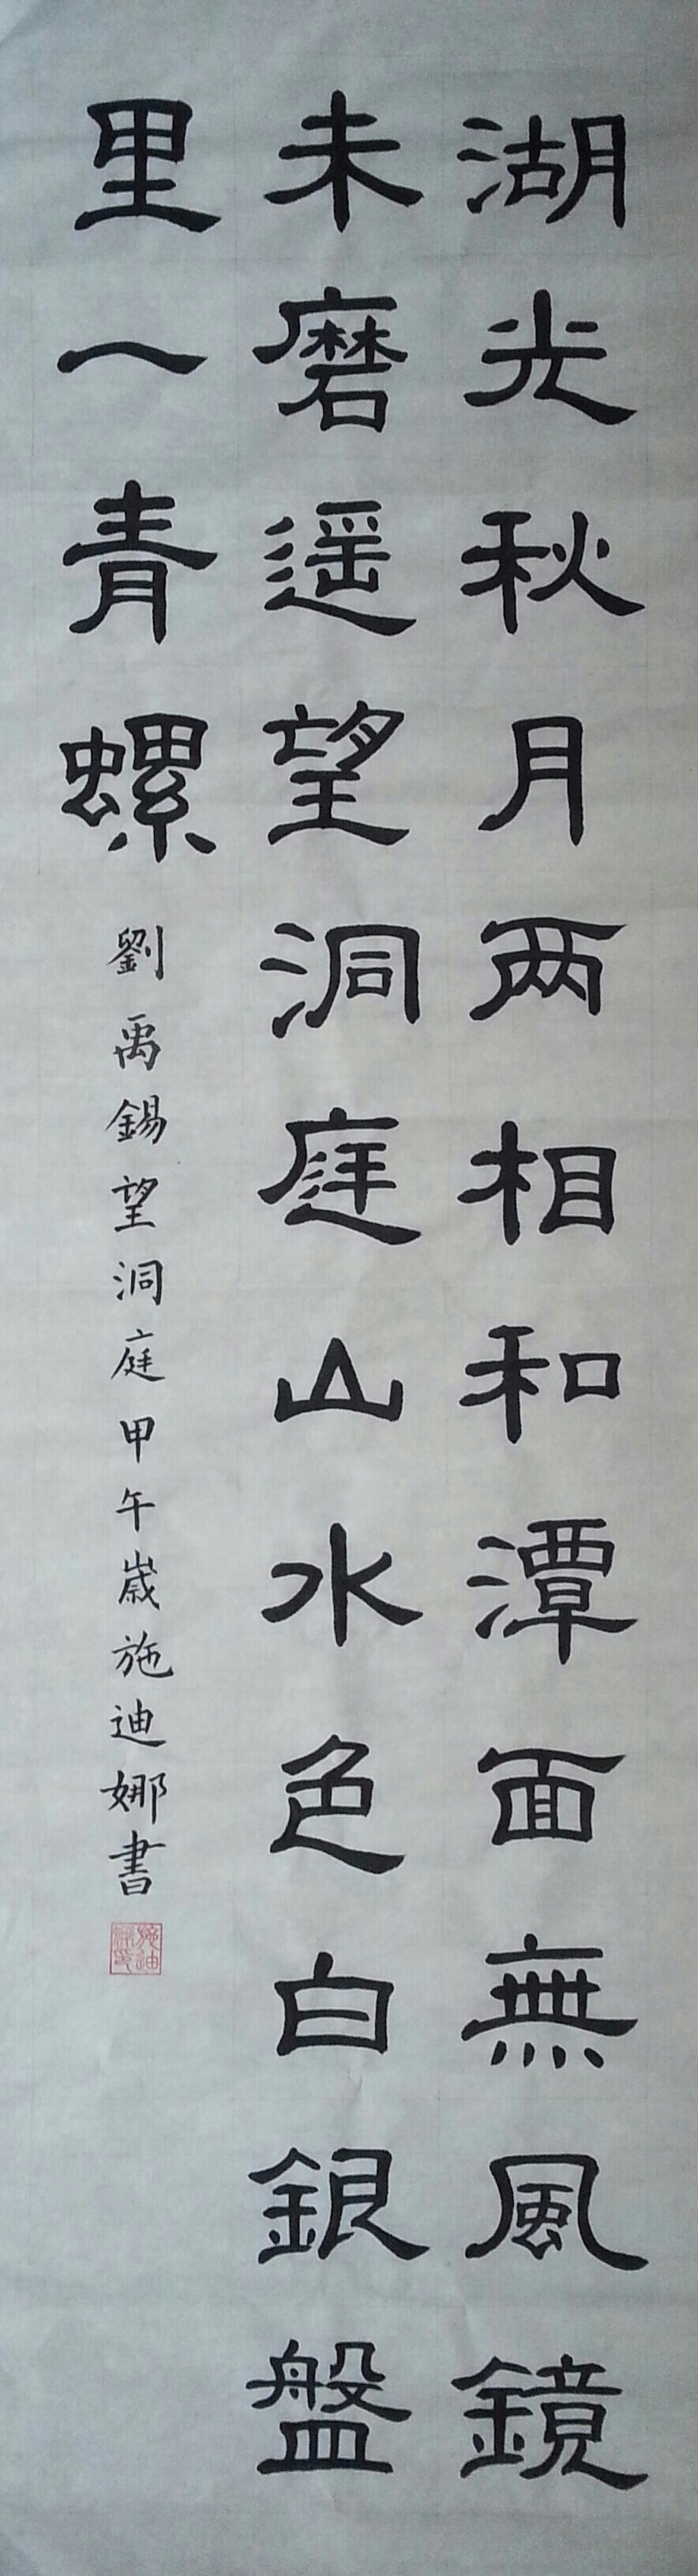 湖光秋月两相和潭面無風鏡
未磨遥望洞庭山水色白銀盤
里一青螺
劉禹錫望洞庭甲午歳施迪娜書
施迪娜印